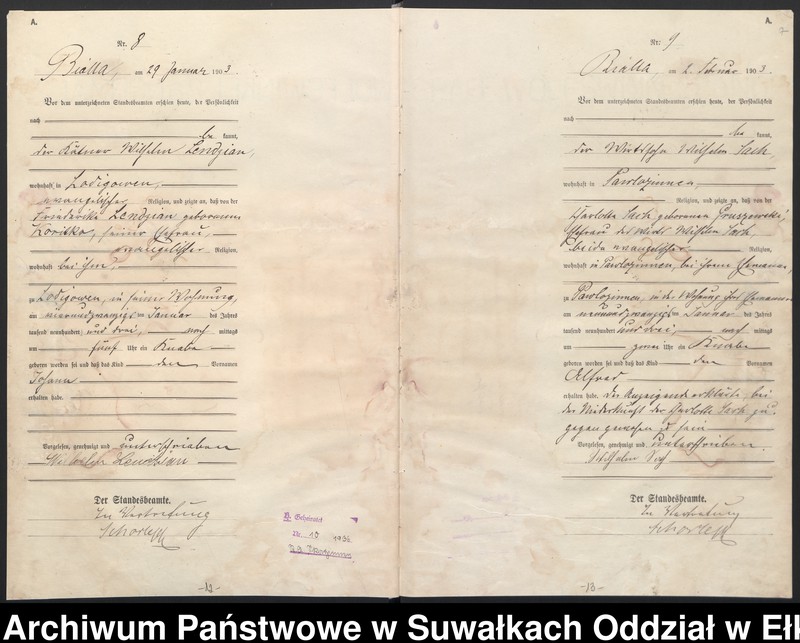 A.
Nr. 8
Bialla, am 29 Januar 1903
Vor dem unterzeichneten Standesbeamten erschien heute, der Persönlichkeit
nach
be kannt,
der Kätner Wilhelm Lendzian,
wohnhaft in Lodigowen,
evangelischer Religion, und zeigte an, daß von der
Friederike Lendzian geborenen
Koritko, seiner Ehefrau,
evangelischer Religion,
wohnhaft bei ihm,
zu Lodigowen, in seiner Wohnung,
am neunundzwanzigsten Januar des Jahres
tausend neunhundert und drei, nach mittags
um fünf Uhr ein Knabe
geboren worden sei und daß das Kind den Vornamen
Johann
erhalten habe.
Vorgelesen, genehmigt und unterschrieben
Wilhelm Lendzian
Der Standesbeamte.
In Vertretung
B. Geheiratet
Nr. 10 1936
-12-
A.
7
Nr. 9
Bialla, am 2. Februar 1903.
Vor dem unterzeichneten Standesbeamten erschien heute, der Persönlichkeit
nach
be kannt,
der Wirtssohn Wilhelm Sach,
wohnhaft in Pawlozinnen,
Religion, und zeigte an, daß von der
Charlotte Sach geborenen Gruszewski,
Ehefrau des Wirts Wilhelm Sach,
beide evangelischer Religion,
wohnhaft in Pawlozinnen, bei ihrem Ehemanne,
zu Pawlozinnen, in der Wohnung ihres Ehemannes
am neunundzwanzigsten Januar des Jahres
tausend neunhundert und drei, nach mittags
um zwei Uhr ein Knabe
geboren worden sei und daß das Kind den Vornamen
Alfred
erhalten habe. Der Anzeigende erklärte, bei
der Niederkunft der Charlotte Sach zu-
gegen gewesen zu sein
Vorgelesen, genehmigt und unterschrieben.
Wilhelm Sach
Der Standesbeamte.
In Vertretung
-13-
Archiwum Państwowe w Suwałkach Oddział w Eł